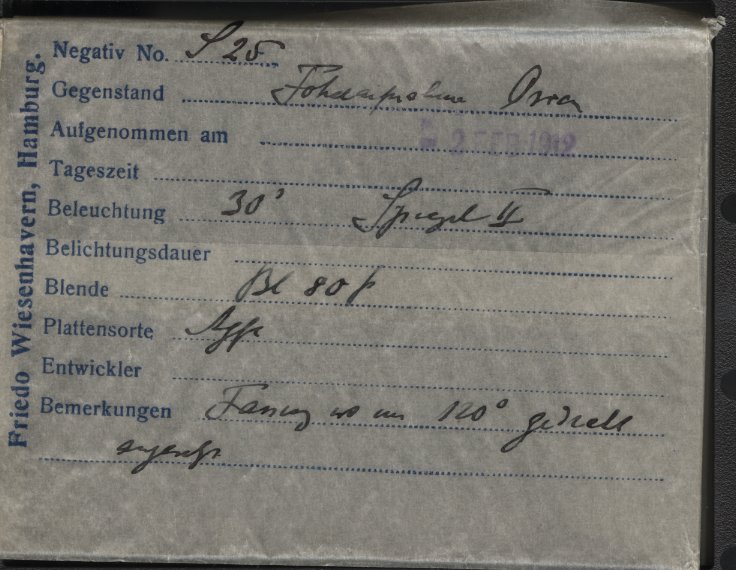 Friedo Wiesenhavern, Hamburg.
Negativ No. S 25
Gegenstand
Aufgenommen am 2 FEB 1912
Tageszeit
Beleuchtung 30° Spiegel II
Belichtungsdauer
Blende Bl 80
Plattensorte Agfa
Entwickler
Bemerkungen Fassung 120° gedreht